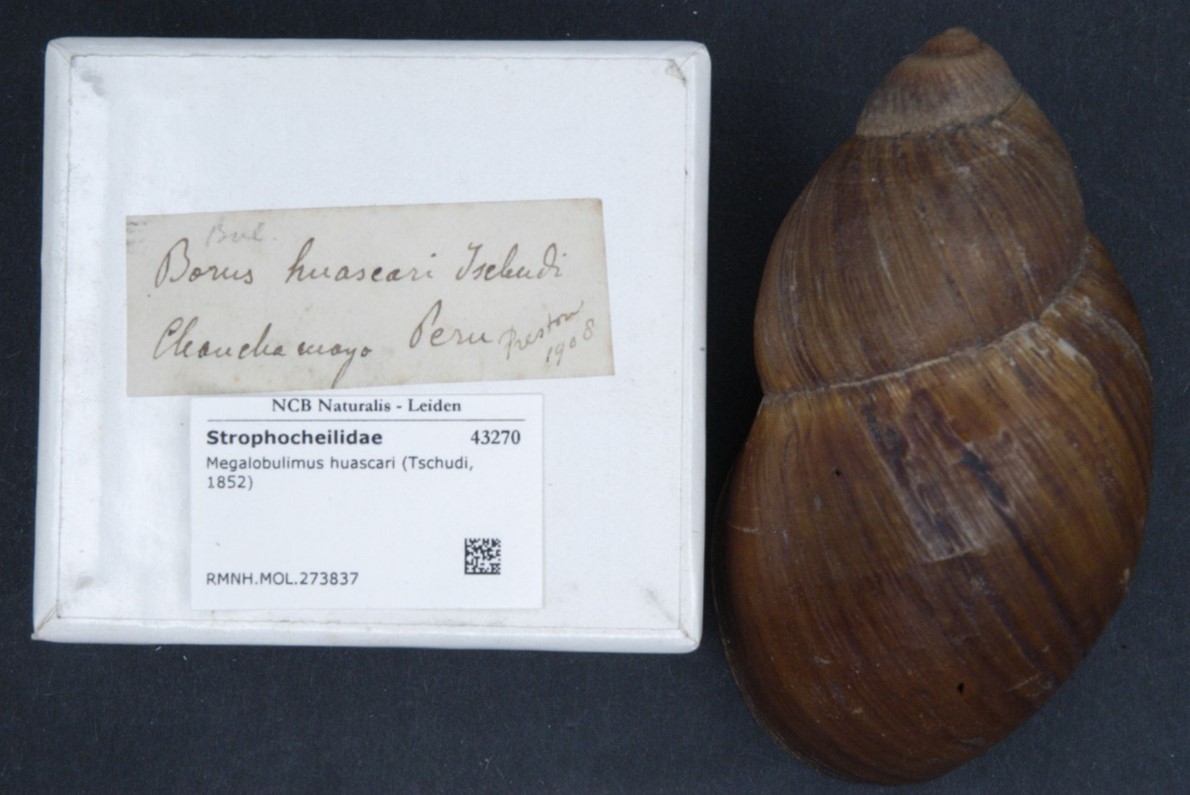 Bul.
Borus huascari Tschudi
Chanchamayo Peru Preston
1908
NCB Naturalis - Leiden
Strophocheilidae 43270
Megalobulimus huascari (Tschudi,
1852)
RMNH.MOL.273837